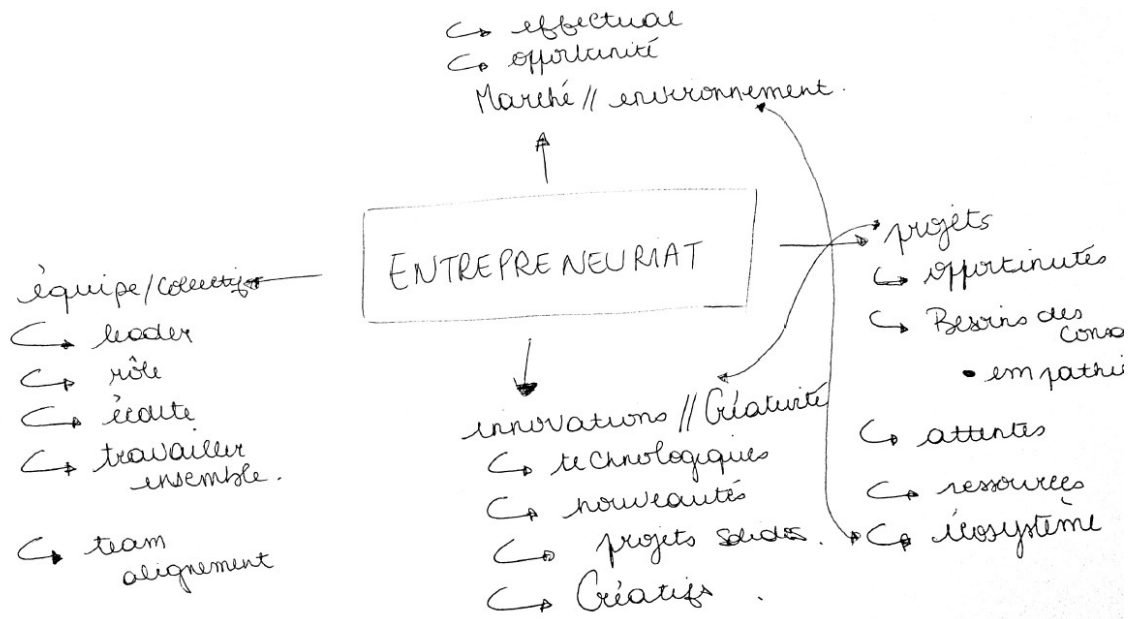 effectual
opportunité
Marché // environnement.
ENTREPRENEURIAT
équipe/collectif
leader
rôle
écoute
travailler
ensemble.
team
alignement
innovations // Créativité
technologiques
nouveautés
projets solides.
Créatifs.
projets
opportinutés
Besoins des
conso
empathie
attentes
ressources
écosystème